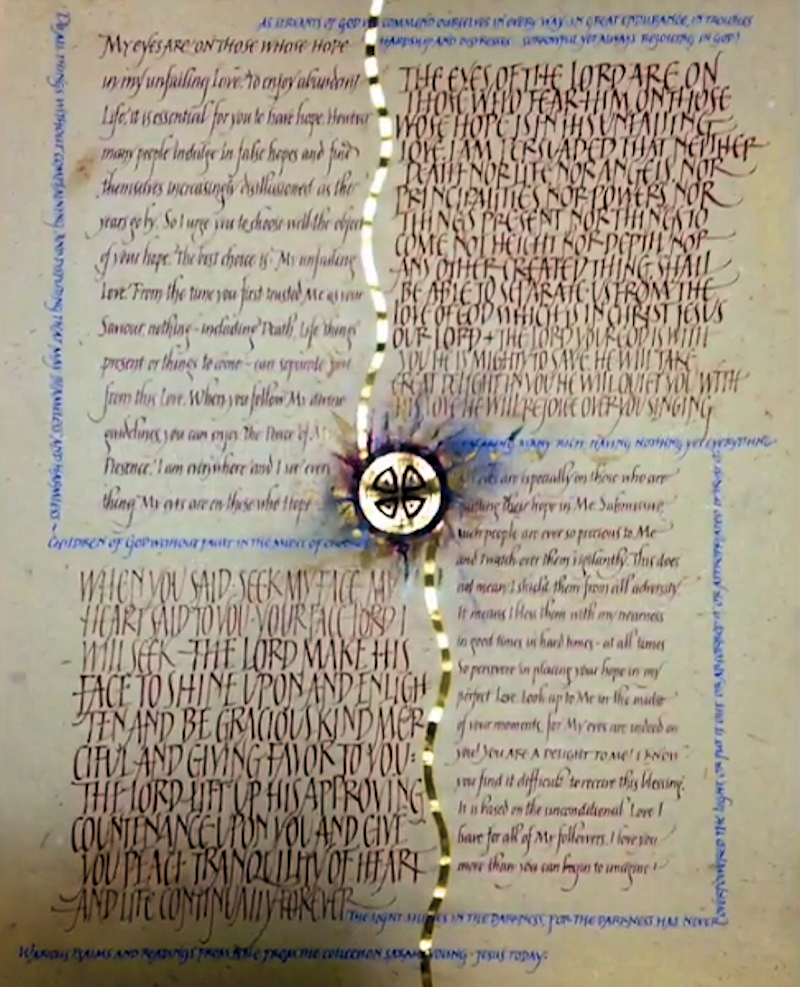 AS SERVANTS OF GOD WE COMMEND OURSELVES IN EVERY WAY: IN GREAT ENDURANCE, IN TROUBLES
HARDSHIP AND DISTRESSES SORROWFUL, YET ALWAYS REJOICING IN GOD!
DO ALL THINGS WITHOUT COMPLAINING AND DISPUTING THAT MAY BLAMELESS AND HARMLESS ~
MY EYES ARE ON THOSE WHOSE HOPE
in my unfailing Love. To enjoy abundant
Life, it is essential for you to have hope. However
many people indulge in false hopes and find
themselves increasingly disillusioned as the
years go by. So I urge you to choose well the object
of your hope. The best choice is My unfailing
Love. From the time you first trusted Me as your
Saviour, nothing - including Death, Life things
present or things to come - can separate you
from this Love. When you follow My divine
guidelines, you can enjoy the Peace of My
Presence. I am everywhere and I see every
thing. My eyes are on those who Hope
CHILDREN OF GOD WITHOUT FAULT IN THE MIDST OF
THE EYES OF THE LORD ARE ON
THOSE WHO FEAR HIM, ON THOSE
WOSE HOPE IS IN HIS UNFAILING
LOVE. I AM PERSUADED THAT NEITHER
DEATH NOR LIFE NOR ANGELS, NOR
PRINCIPALITIES NOR POWERS NOR
THINGS PRESENT NOR THINGS TO
COME NOT HEIGHT NOR DEPTH, NOR
ANY OTHER CREATED THING, SHALL
BE ABLE TO SEPARATE US FROM THE
LOVE OF GOD WHICH IS IN CHRIST JESUS
OUR LORD + THE LORD YOUR GOD IS WITH
YOU HE IS MIGHTY TO SAVE. HE WILL TAKE
GREAT DELIGHT IN YOU HE WILL QUIET YOU WITH
HIS LOVE HE WILL REJOICE OVER YOU SINGING
MANY RICH: HAVING NOTHING, YET EVERYTHING
My eyes are especially on those who are
putting these hope in Me. Submissive,
such people are ever so precious to Me
and I watch over them vigilantly. This does
not mean I shield them from all adversity.
It means I bless them with my nearness
in good times in hard times - at all times
So persevere in placing your hope in my
perfect Love. Look up to Me in the midst
of your moments, for My eyes are indeed on
you! YOU ARE A DELIGHT TO ME! I KNOW
you find it difficult to receive this blessing.
It is based on the unconditional Love I
have for all of My followers. I love you
more than you can begin to imagine!
WHEN YOU SAID SEEK MY FACE MY
HEART SAID TO YOU YOUR FACE LORD I
WILL SEEK THE LORD MAKE HIS
FACE TO SHINE UPON AND ENLIGH
TEN AND BE GRACIOUS KIND MER
CIFUL AND GIVING FAVOR TO YOU:
THE LORD LIFT UP HIS APPROVING
COUNTENANCE UPON YOU AND GIVE
YOU PEACE TRANQUILITY OF HEART
AND LIFE CONTINUALLY FOREVER
THE LIGHT SHINES IN THE DARKNESS, FOR THE DARKNESS HAS NEVER
OVERPOWERED THE light OR put it out OR ABSORBED it OR APPROPRIATED it
VARIOUS PSALMS AND READINGS FROM FROM THE COLLECTION SARAH YOUNG - JESUS TODAY.